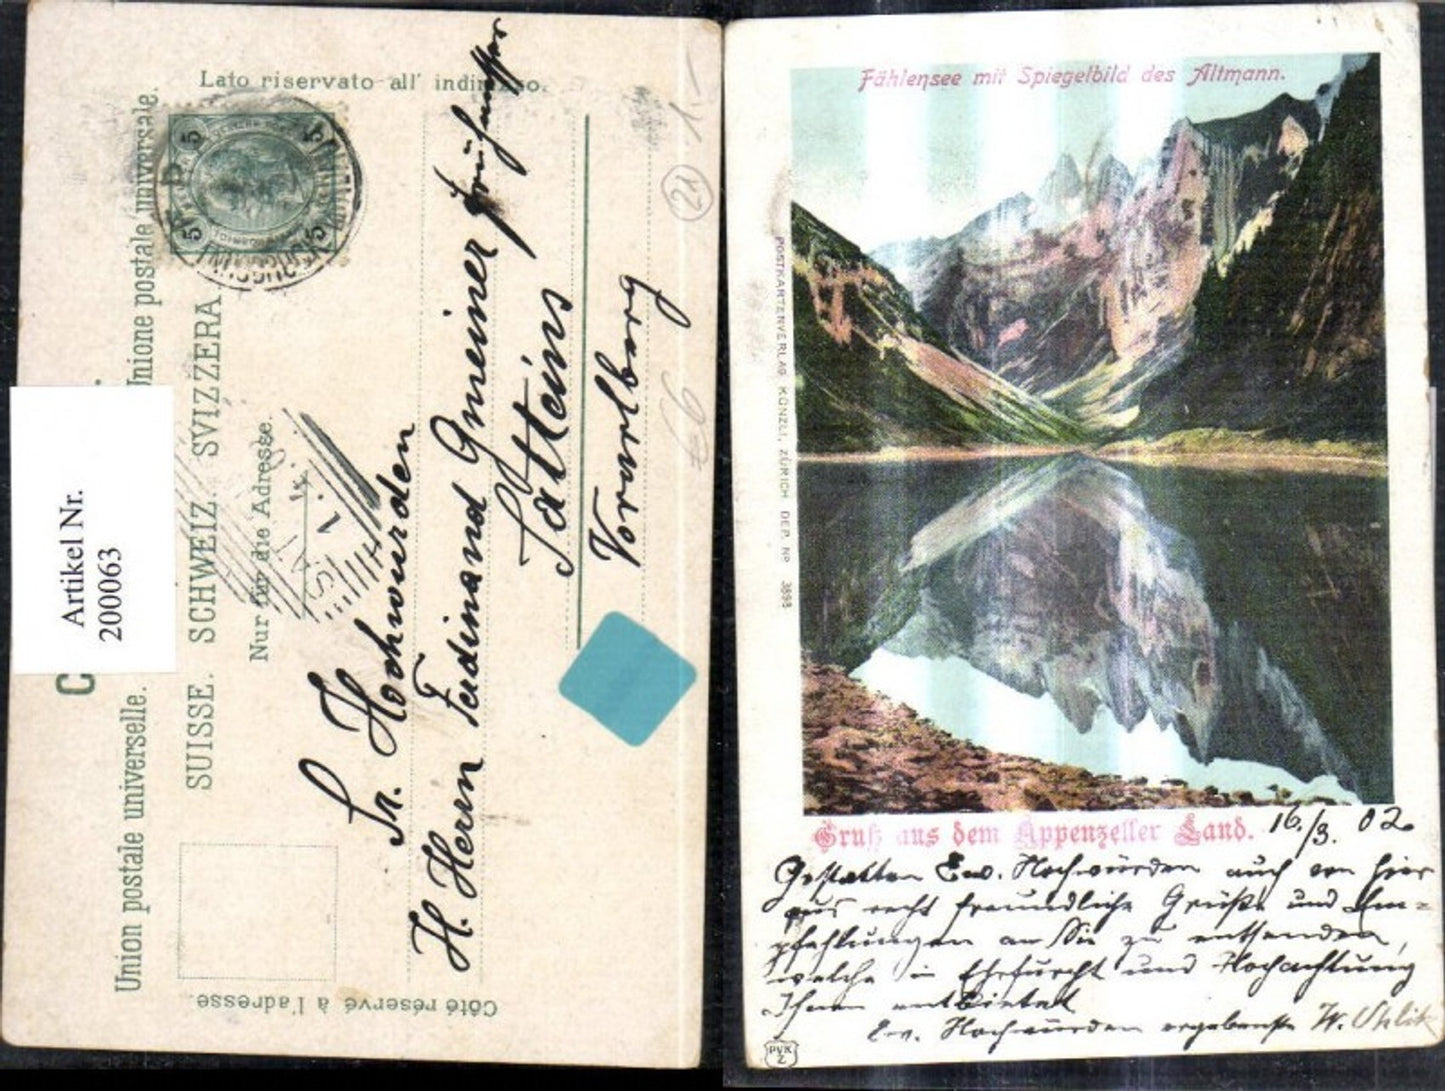 Lato riservato all' indirizzo.
Unione postale universale.
Union postale universelle.
SUISSE. SCHWEIZ. SVIZZERA.
Nur für die Adresse.
Côté réservé à l'adresse.
5 5
5 5
Artikel Nr.
200063
Sr. Hochwürden
H. Herrn Ferdinand Gmeiner
Satteins
Vorarlberg
21
1.-
66
Fählensee mit Spiegelbild des Altmann.
POSTKARTENVERLAG KÜNZLI, ZÜRICH DEP. Nº 3893
Gruß aus dem Appenzeller Land.
16./3. 02.
Gestatten Ew. Hochwürden auch von hier
aus recht freundliche Grüße und Em=
pfehlungen an Sie zu entsenden,
welche in Ehrfurcht und Hochachtung
Ihnen entbietet
Ew. Hochwürden ergebenster W.
PVK
Z